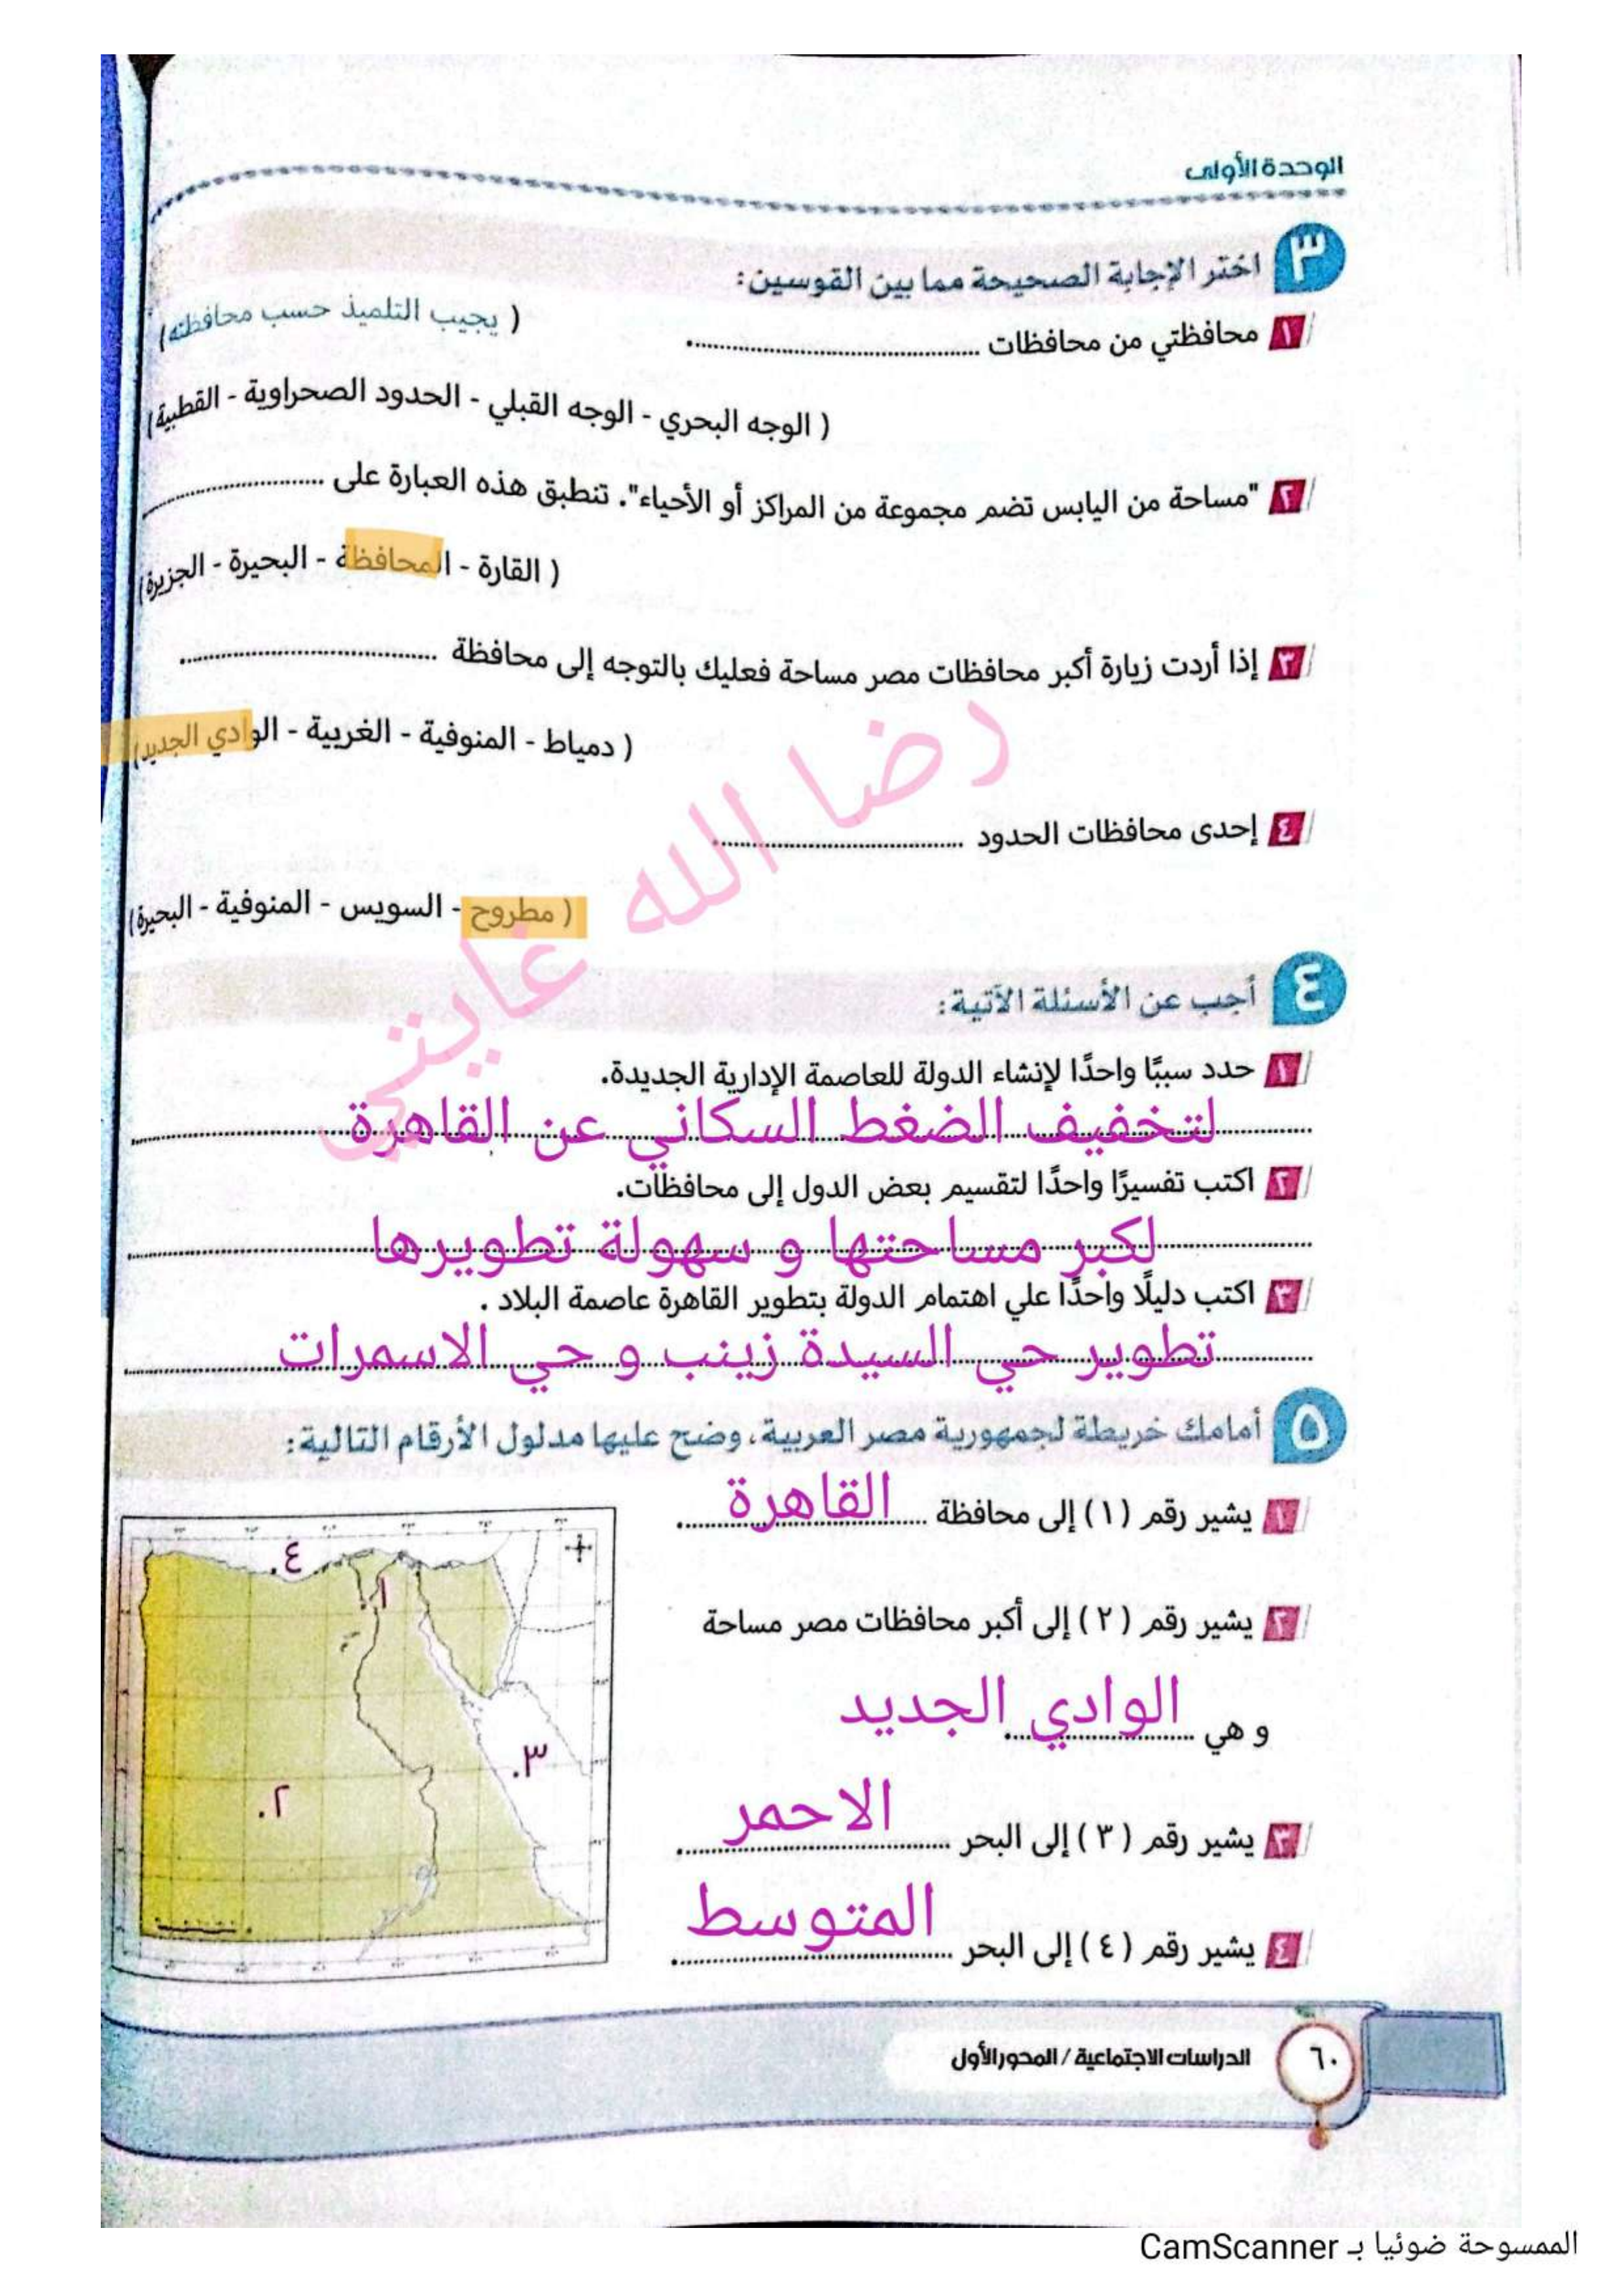 الوحدة الأولى
٣ اختر الإجابة الصحيحة مما بين القوسين:
١ محافظتي من محافظات ........................ ( يجيب التلميذ حسب محافظته)
( الوجه البحري - الوجه القبلي - الحدود الصحراوية - القطبية)
٢ "مساحة من اليابس تضم مجموعة من المراكز أو الأحياء". تنطبق هذه العبارة على ........................
( القارة - المحافظة - البحيرة - الجزيرة)
٣ إذا أردت زيارة أكبر محافظات مصر مساحة فعليك بالتوجه إلى محافظة ........................
( دمياط - المنوفية - الغربية - الوادي الجديد)
٤ إحدى محافظات الحدود ........................
( مطروح - السويس - المنوفية - البحيرة)
رضا الله غايتي
٤ أجب عن الأسئلة الآتية:
١ حدد سببًا واحدًا لإنشاء الدولة للعاصمة الإدارية الجديدة.
لتخفيف الضغط السكاني عن القاهرة
٢ اكتب تفسيرًا واحدًا لتقسيم بعض الدول إلى محافظات.
لكبر مساحتها و سهولة تطويرها
٣ اكتب دليلًا واحدًا علي اهتمام الدولة بتطوير القاهرة عاصمة البلاد .
تطوير حي السيدة زينب و حي الاسمرات
٥ أمامك خريطة لجمهورية مصر العربية، وضح عليها مدلول الأرقام التالية:
١ يشير رقم (١) إلى محافظة القاهرة
٢ يشير رقم (٢) إلى أكبر محافظات مصر مساحة
و هي الوادي الجديد
٣ يشير رقم (٣) إلى البحر الاحمر
٤ يشير رقم (٤) إلى البحر المتوسط
٤.
١
٣.
٢.
٦٠ الدراسات الاجتماعية / المحور الأول
الممسوحة ضوئيا بـ CamScanner